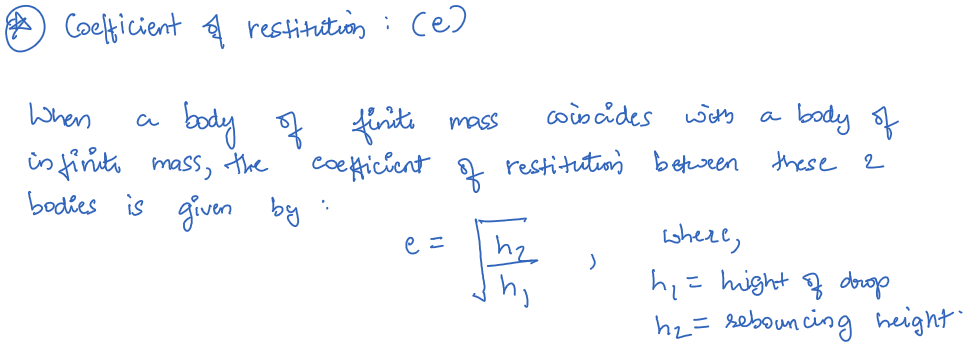 Coefficient of restitution : (e)
When a body of finite mass coincides with a body of
infinite mass, the coefficient of restitution between these 2
bodies is given by :
e = √(h₂/h₁) , where,
h₁ = hight of drop
h₂ = rebouncing height.